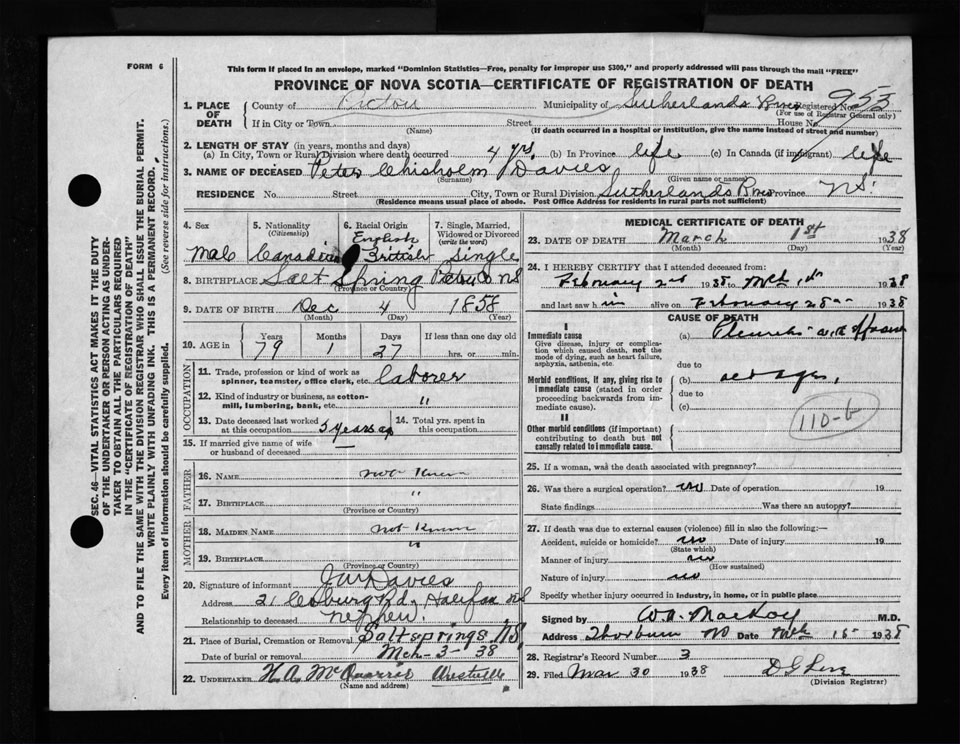 FORM 6
This form if placed in an envelope, marked "Dominion Statistics—Free, penalty for improper use $300," and properly addressed will pass through the mail "FREE"
PROVINCE OF NOVA SCOTIA—CERTIFICATE OF REGISTRATION OF DEATH
SEC. 46—VITAL STATISTICS ACT MAKES IT THE DUTY
OF THE UNDERTAKER OR PERSON ACTING AS UNDER-
TAKER TO OBTAIN ALL THE PARTICULARS REQUIRED
IN THE "CERTIFICATE OF REGISTRATION OF DEATH"
AND TO FILE THE SAME WITH THE DIVISION REGISTRAR WHO SHALL ISSUE THE BURIAL PERMIT.
WRITE PLAINLY WITH UNFADING INK. THIS IS A PERMANENT RECORD.
Every item of information should be carefully supplied. (See reverse side for instructions.)
1. PLACE OF DEATH
County of Pictou Municipality of Sutherlands River Registered No. 953
(For use of Registrar General only)
If in City or Town Street House No.
(Name) (If death occurred in a hospital or institution, give the name instead of street and number)
2. LENGTH OF STAY (in years, months and days)
(a) In City, Town or Rural Division where death occurred 4 yrs. (b) In Province life (c) In Canada (if immigrant) life
3. NAME OF DECEASED Peter Chisholm Davies
(Surname) (Given name or names)
RESIDENCE No. Street City, Town or Rural Division Sutherlands River Province N.S.
(Residence means usual place of abode. Post Office Address for residents in rural parts not sufficient)
4. Sex Male
5. Nationality (Citizenship) Canadian
6. Racial Origin English British
7. Single, Married, Widowed or Divorced (write the word) Single
8. BIRTHPLACE Salt Spring Pictou Co NS
(Province or Country)
9. DATE OF BIRTH Dec 4 1858
(Month) (Day) (Year)
10. AGE in Years 79 Months 1 Days 27 If less than one day old hrs. or min.
OCCUPATION
11. Trade, profession or kind of work as spinner, teamster, office clerk, etc. laborer
12. Kind of industry or business, as cotton-mill, lumbering, bank, etc. "
13. Date deceased last worked at this occupation 5 years ago
14. Total yrs. spent in this occupation
15. If married give name of wife or husband of deceased
FATHER
16. NAME not known
17. BIRTHPLACE "
(Province or Country)
MOTHER
18. MAIDEN NAME not known
19. BIRTHPLACE "
(Province or Country)
20. Signature of informant Davies
Address 21 Coburg Rd. Halifax NS
Relationship to deceased nephew.
21. Place of Burial, Cremation or Removal Saltsprings NS
Date of burial or removal Mch-3-38
22. UNDERTAKER H.A. McQuarrie Westville
(Name and address)
MEDICAL CERTIFICATE OF DEATH
23. DATE OF DEATH March 1st 1938
(Month) (Day) (Year)
24. I HEREBY CERTIFY that I attended deceased from:
February 2nd 1938 to Mch 1st 1938
and last saw him alive on February 28 1938
CAUSE OF DEATH
I
Immediate cause
Give disease, injury or complication which caused death, not the mode of dying, such as heart failure, asphyxia, asthenia, etc.
(a)
due to
Morbid conditions, if any, giving rise to immediate cause (stated in order proceeding backwards from immediate cause).
(b) old age,
due to
(c)
110-b
II
Other morbid conditions (if important) contributing to death but not causally related to immediate cause.
25. If a woman, was the death associated with pregnancy?
26. Was there a surgical operation? no Date of operation 19
State findings Was there an autopsy?
27. If death was due to external causes (violence) fill in also the following:—
Accident, suicide or homicide? no Date of injury 19
(State which)
Manner of injury no
(How sustained)
Nature of injury no
Specify whether injury occurred in industry, in home, or in public place
Signed by W.A. MacKay M.D.
Address Thorburn NS Date Mch 1st 1938
28. Registrar's Record Number 3
29. Filed Mar 30 1938
(Division Registrar)